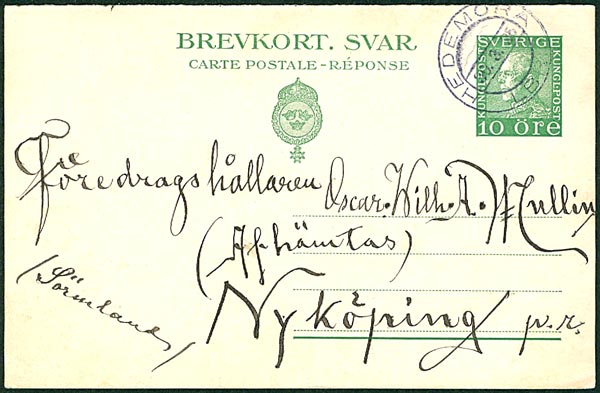 BREVKORT. SVAR.
CARTE POSTALE-RÉPONSE
HEDEMORA
SVERIGE
KUNGL.POST
KUNGL.POST
10 öre
Föredragshållaren Oscar. Wilh. A. Mullin
(Afhämtas)
Nyköping p.r.
(Sörmland)